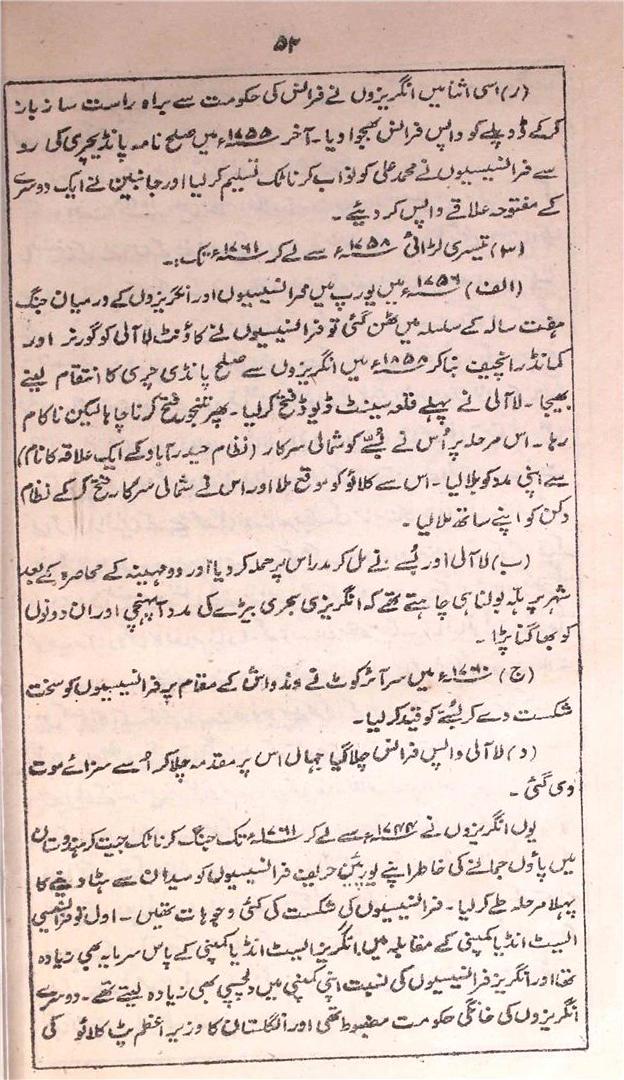 ۵۲
(ر) اسی اثنا میں انگریزوں نے فرانس کی حکومت سے براہ راست ساز باز
کر کے ڈوپلے کو واپس فرانس بھجوا دیا۔ آخر ۱۷۵۵ء میں صلح نامہ پانڈیچری کی رو
سے فرانسیسیوں نے محمد علی کو نواب کرناٹک تسلیم کر لیا اور جانبین نے ایک دوسرے
کے مفتوحہ علاقے واپس کر دیئے۔
(۳) تیسری لڑائی ۱۷۵۸ء سے لے کر ۱۷۶۱ء تک:۔
(الف) ۱۷۵۶ء میں یورپ میں فرانسیسیوں اور انگریزوں کے درمیان جنگ
ہفت سالہ کے سلسلہ میں ٹھن گئی تو فرانسیسیوں نے کاؤنٹ لاآلی کو گورنر اور
کمانڈر انچیف بنا کر ۱۸۵۸ء میں انگریزوں سے صلح پانڈی چری کا انتقام لینے
بھیجا۔ لاآلی نے پہلے قلعہ سینٹ ڈیوڈ فتح کر لیا۔ پھر تنجور فتح کرنا چاہا لیکن ناکام
رہا۔ اس مرحلہ پر اُس نے بُسّے کو شمالی سرکار (نظام حیدرآباد کے ایک علاقہ کا نام)
سے اپنی مدد کو بلا لیا۔ اس سے کلائو کو موقع ملا اور اس نے شمالی سرکار فتح کر کے نظام
دکن کو اپنے ساتھ ملا لیا۔
(ب) لاآلی اور بُسے نے مل کر مدراس پر حملہ کر دیا اور دو مہینہ کے محاصرہ کے بعد
شہر پر ہلہ بولنا ہی چاہتے تھے کہ انگریزی بحری بیڑے کی مدد آپہنچی اور ان دونوں
کو بھاگنا پڑا۔
(ج) ۱۷۶۰ء میں سر آئر کوٹ نے ونڈواش کے مقام پر فرانسیسیوں کو سخت
شکست دے کر بُسے کو قید کر لیا۔
(د) لاآلی واپس فرانس چلا گیا جہاں اس پر مقدمہ چلا کر اُسے سزائے موت
دی گئی۔
یوں انگریزوں نے ۱۷۴۴ء سے لے کر ۱۷۶۱ء تک جنگ کرناٹک جیت کر ہندوستان
میں پاؤں جمانے کی خاطر اپنے یورپین حریف فرانسیسیوں کو میدان سے ہٹا دینے کا
پہلا مرحلہ طے کر لیا۔ فرانسیسیوں کی شکست کی کئی وجوہات تھیں۔ اول تو فرانسیسی
ایسٹ انڈیا کمپنی کے مقابلہ میں انگریز ایسٹ انڈیا کمپنی کے پاس سرمایہ بھی زیادہ
تھا اور انگریز فرانسیسیوں کی نسبت اپنی کمپنی میں دلچسپی بھی زیادہ لیتے تھے۔ دوسرے
انگریزوں کی خانگی حکومت مضبوط تھی اور انگلستان کا وزیر اعظم پٹ کلائو کی